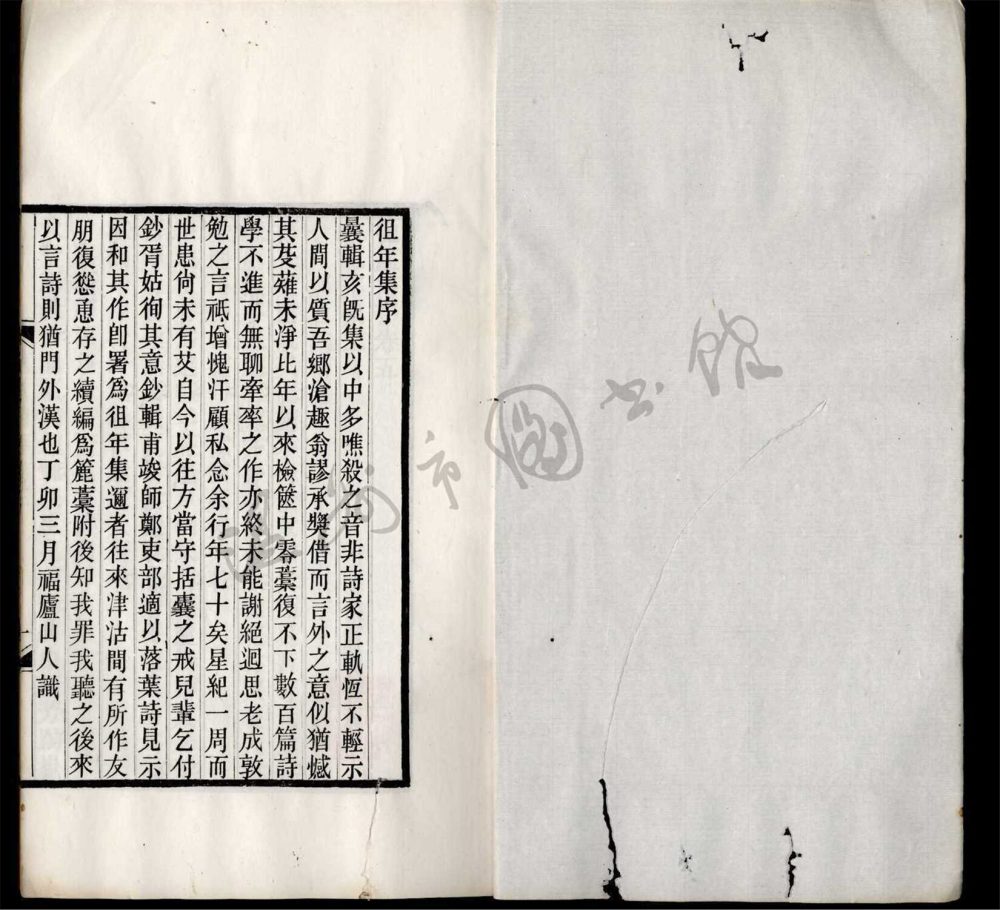 徂年集序
曩輯亥旣集以中多噍殺之音非詩家正軌恆不輕示
人間以質吾鄉滄趣翁謬承獎借而言外之意似猶憾
其芟薙未淨比年以來檢篋中零藁復不下數百篇詩
學不進而無聊牽率之作亦終未能謝絕迴思老成敦
勉之言祇增愧汗顧私念余行年七十矣星紀一周而
世患尙未有艾自今以往方當守括囊之戒兒輩乞付
鈔胥姑徇其意鈔輯甫竣師鄭吏部適以落葉詩見示
因和其作卽署爲徂年集邇者往來津沽間有所作友
朋復慫恿存之續編爲簏藁附後知我罪我聽之後來
以言詩則猶門外漢也丁卯三月福廬山人識
市圖书馆